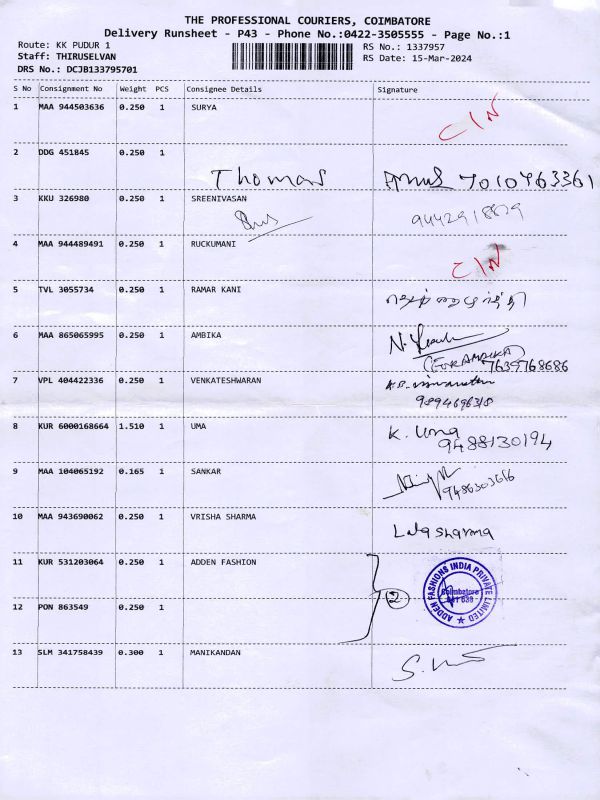 THE PROFESSIONAL COURIERS, COIMBATORE
Delivery Runsheet - P43 - Phone No.:0422-3505555 - Page No.:1
Route: KK PUDUR 1 RS No.: 1337957
Staff: THIRUSELVAN RS Date: 15-Mar-2024
DRS No.: DCJB133795701
S No Consignment No Weight PCS Consignee Details Signature
1 MAA 944503636 0.250 1 SURYA C/N
2 DDG 451845 0.250 1
Thomas 7010763361
3 KKU 326980 0.250 1 SREENIVASAN
9442918879
4 MAA 944489491 0.250 1 RUCKUMANI
C/N
5 TVL 3055734 0.250 1 RAMAR KANI
6 MAA 865065995 0.250 1 AMBIKA
(FOR AMBIKA)
7639768686
7 VPL 404422336 0.250 1 VENKATESHWARAN
9894696318
8 KUR 6000168664 1.510 1 UMA K. Uma
9488130194
9 MAA 104065192 0.165 1 SANKAR
9486303616
10 MAA 943690062 0.250 1 VRISHA SHARMA
Lata Sharma
11 KUR 531203064 0.250 1 ADDEN FASHION
ADDEN FASHIONS INDIA PRIVATE LIMITED
Coimbatore
641 038
2
12 PON 863549 0.250 1
13 SLM 341758439 0.300 1 MANIKANDAN